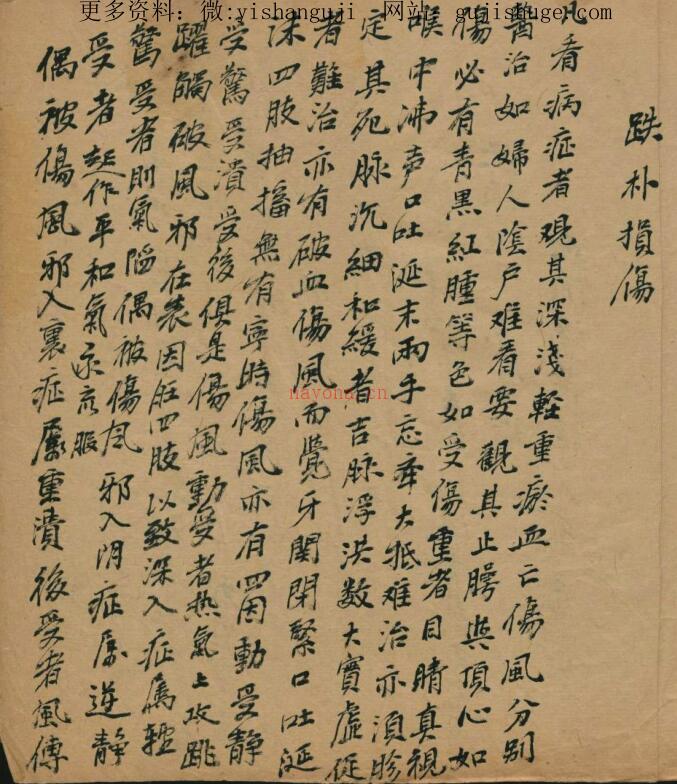 更多资料：微:yishanguji 网站：gujishuger.com
跌朴損傷
凡看病症者观其深淺軽重瘀血亡傷風分别
醫治如婦人陰户难看要觀其上腭與頂心如
傷必有青黑紅腫等色如受傷重者目睛直視
喉中沸声口吐涎末兩手忘牽大抵难治亦須胗
定其死脉沉細和緩者吉脉浮洪数大實虚促
者難治亦有破血傷風而覺牙関閉緊口吐涎
沫四肢抽搐無有寧時傷風亦有四因動受静
受驚受潰受後俱是傷風動受者热氣上攻跳
躍觸破風邪在表因在四肢以致深入症属軽
驚受者則氣陷偶被傷风邪入阴症属逆静
受者起作平和氣
偶被傷風邪入裏症属重潰後受者風傳
nayona.cn